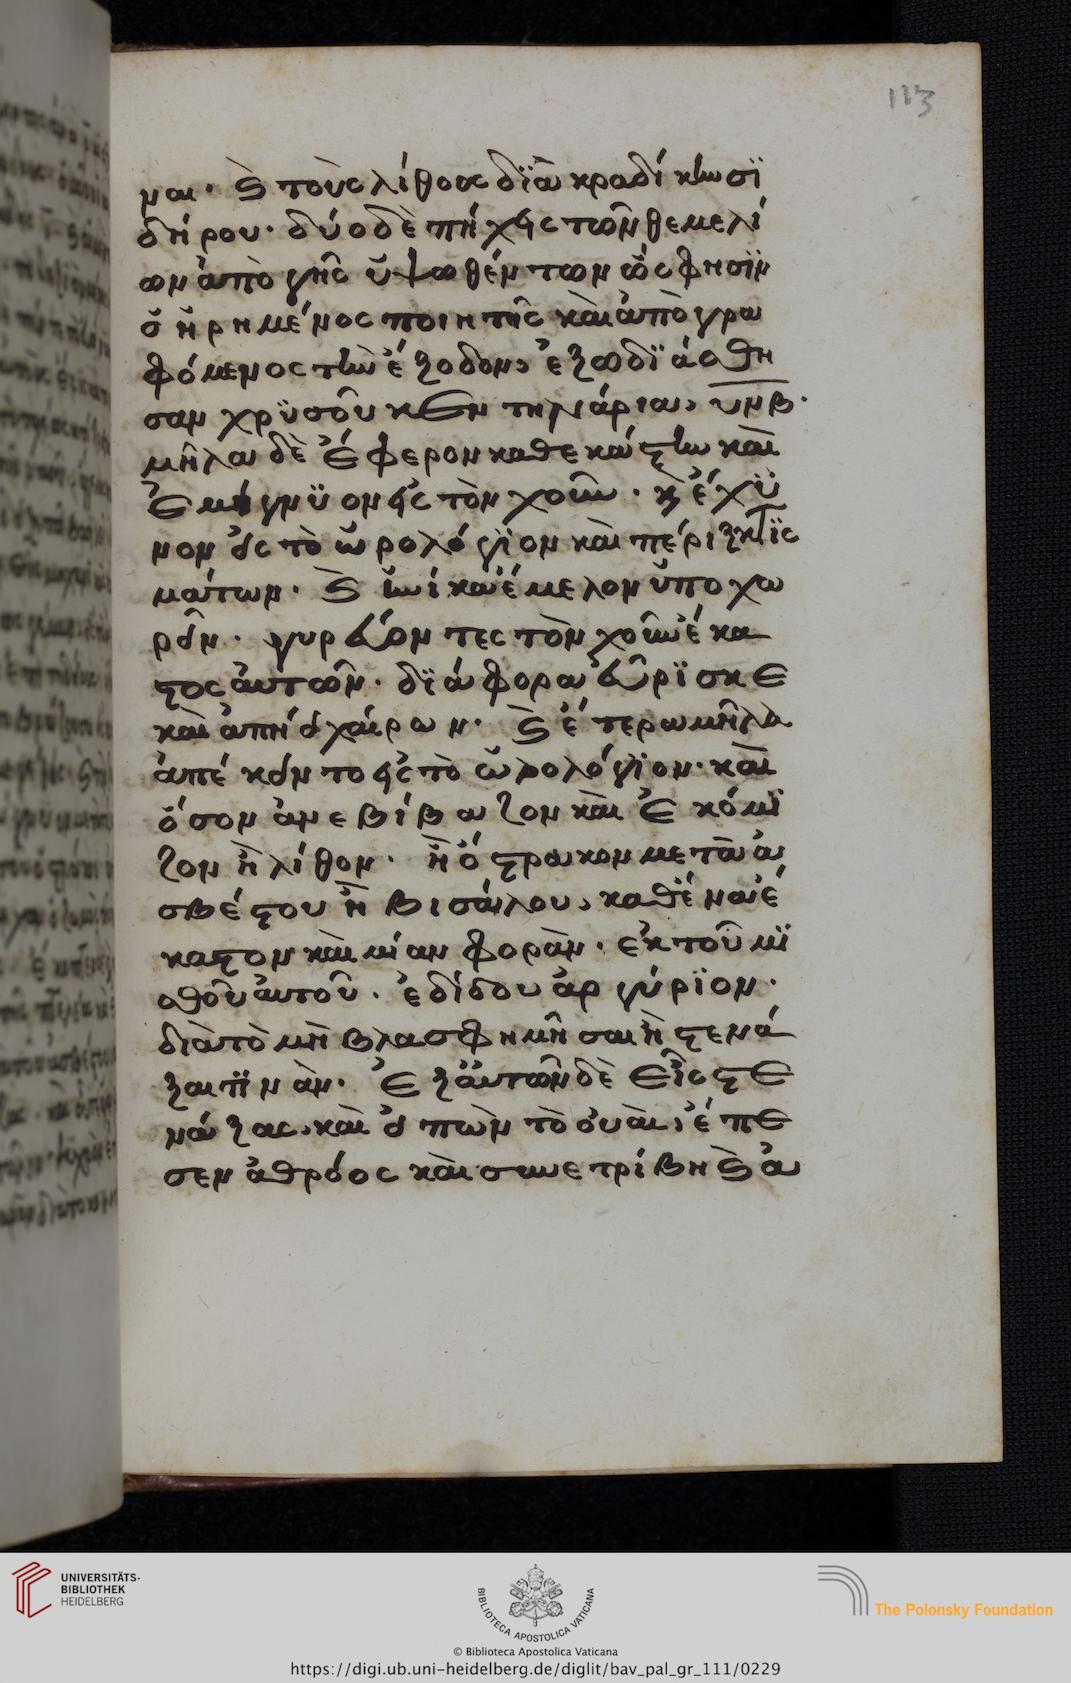 113
μαι· Ϛ τοὺς λίθους δϊὰ κραδίκων σϊ
δήρου· δύο δὲ πήχεις τῶν θεμελί
ων ἀπὸ γῆς ὑψωθέντων ὡς φησϊν
ὁ ἠρημένος ποιητὴς καὶ ἀπὸγρα
φόμενος τὴν ἔξοδον, ἐξωδϊάσθη
σαν χρϋσοῦ κεντηνάρια, υνβ·
μῆλα δὲ ἔφερον καθεκάστην καὶ
ἐμίγνϋον εἰς τὸν χοῦν· κ ἔχϋ
νον εἰς τὸ ὡρολόγϊον καὶ πέριξ κτϊσ
μάτων· Ϛ ἡνίκα ἔμελον ὑποχω
ρεῖν· γυρεύοντες τὸν χοῦν ἕκα
στος αὐτῶν· δϊάφορα εὕρϊσκε
καὶ ἀπήει χαίρων· Ϛ ἕτερα μῆλα
ἀπέκειντο εἰς τὸ ὡρολόγϊον· καὶ
ὅσον ἀνεβίβαζον καὶ ἐκόμϊ
ζον ἢ λίθον· ἢ ὄστρακον μετὰ ἀ
σβέστου ἢ βισάλου, καθ ἕνα ἕ
καστον καὶ μίαν φορὰν· ἐκ τοῦ μϊ
σθοῦ αὐτοῦ· ἐδίδου ἀργύρϊον·
διὰ τὸ μὴ βλασφημῆσαι ἢ στενά
ξαι τϊνὰν· ἐξ αὐτῶν δὲ εἷς στε
νάξας, καὶ εἰπὼν τὸ οὐαὶ, ἔπε
σεν ἀθρόος καὶ συνετρίβη Ϛ ἀ
UNIVERSITÄTS-
BIBLIOTHEK
HEIDELBERG
BIBLIOTECA APOSTOLICA VATICANA
The Polonsky Foundation
© Biblioteca Apostolica Vaticana
https://digi.ub.uni-heidelberg.de/diglit/bav_pal_gr_111/0229